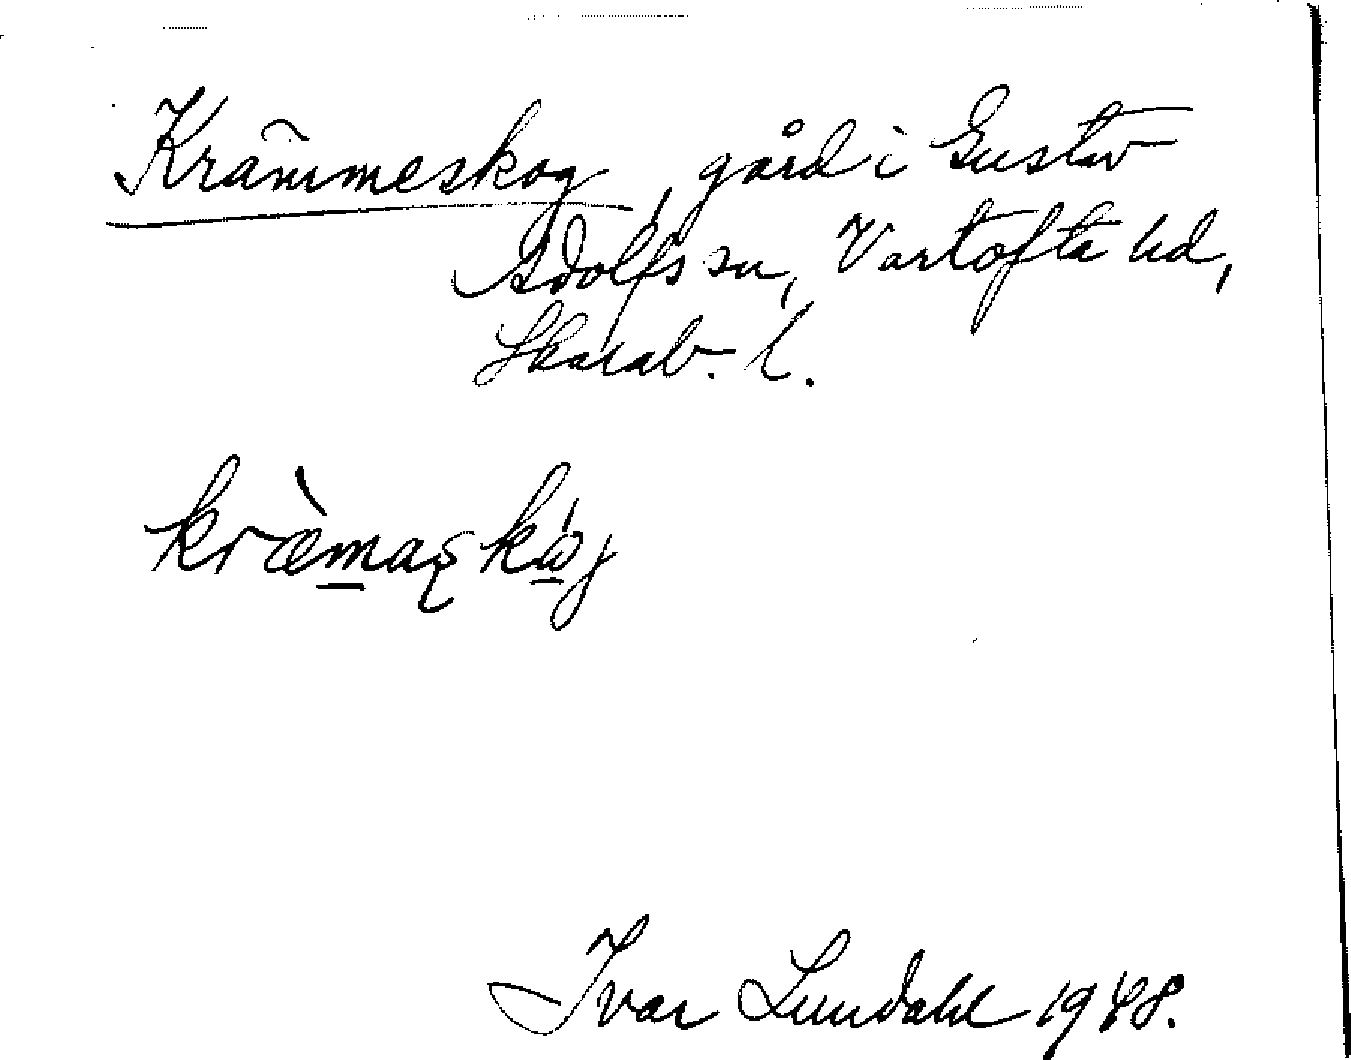 Krämmeskog, gård i Gustav
Adolfs sn, Vartofta hd,
Skarab. l.
kræ̀maskóg
Ivar Lundahl 1948.